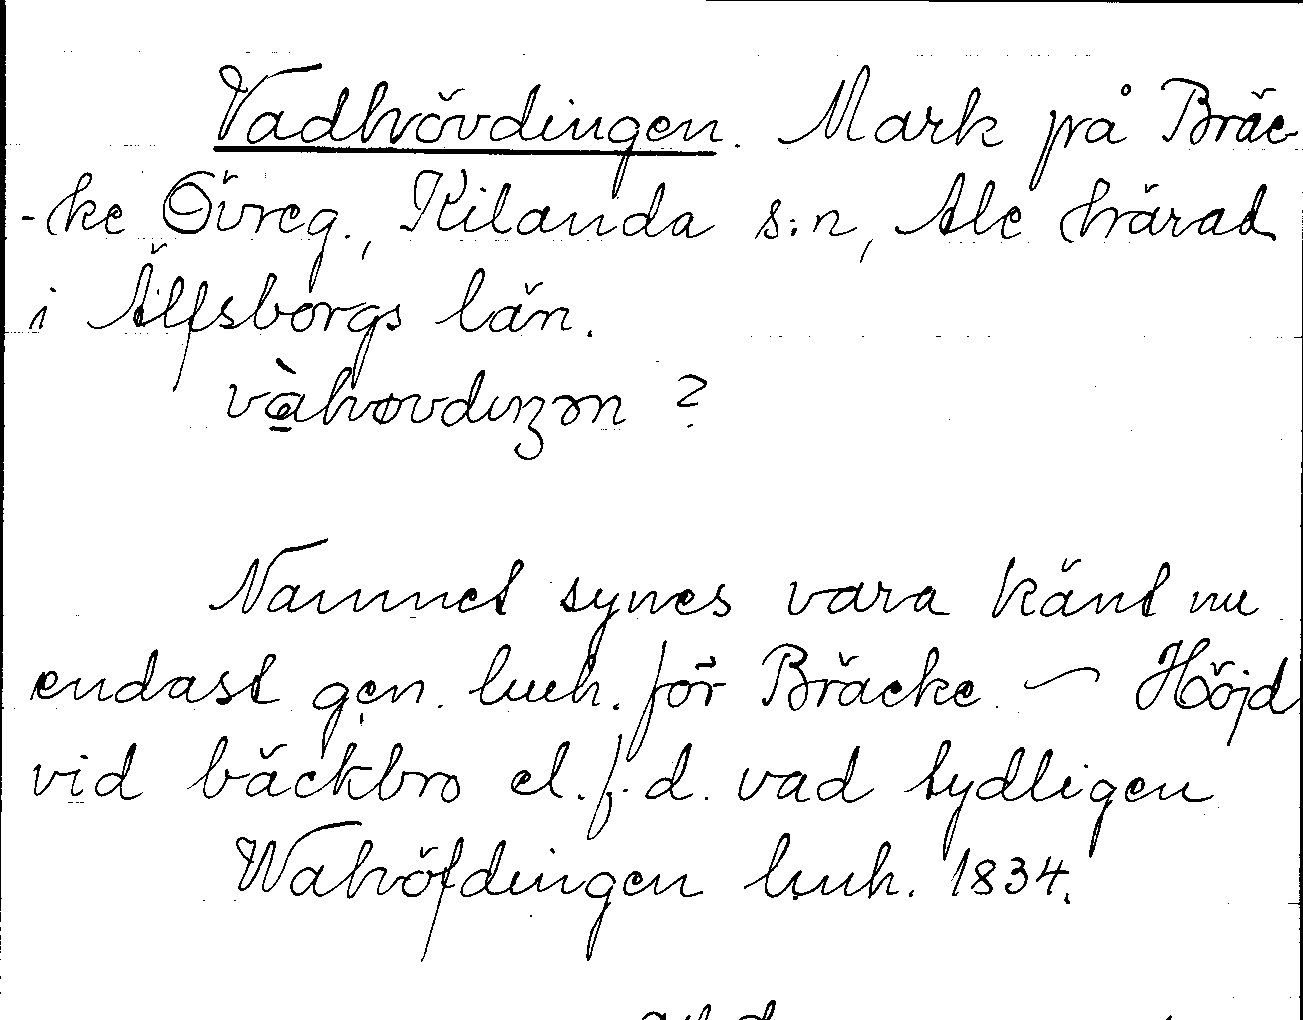 Vadhövdingen. Mark på Bräc-
-ke Övreg., Kilanda s:n, Ale härad
i Älfsborgs län.
vàhøvdıŋən ?
Namnet synes vara känt nu
endast gen. luh. för Bräcke – Höjd
vid bäckbro el. f.d. vad tydligen
Wahöfdingen luh. 1834.